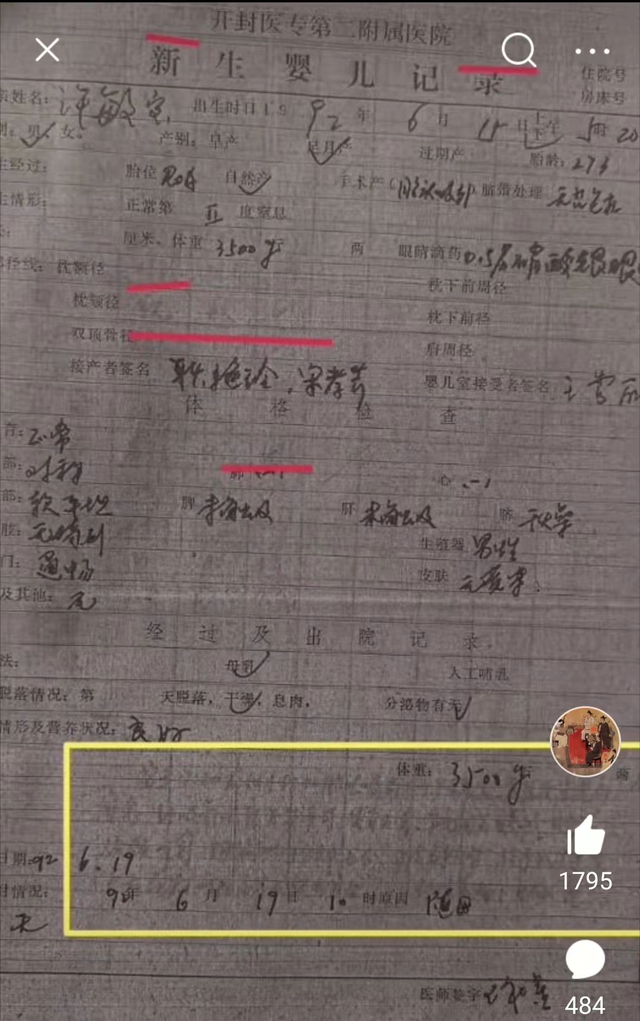 开封医专第二附属医院
新生婴儿记录
住院号
房床号
姓名:许敏宝 出生时日19 92年 6月 15日 上午 下午 5时 20
别:男 女。 产别:早产 足月产 过期产 胎龄:273
生经过: 胎位 自然产 手术产 脐带处理
生情形: 正常第 II 度窒息
厘米、体重 3500g 两 眼睛滴药 0.5%硝酸银眼
径线:枕额径 枕下前周径
枕颏径 枕下前径
双顶骨径 肩周径
接产者签名 婴儿室接受者签名
体格检查
音:正常
部:对称 肺 (-) 心 (-)
部:软平坦 脾 未触及 肝 未触及 脐
肢:无畸形 生殖器 男性
门:通畅 皮肤 无黄染
及其他:无
经过及出院记录
法: 母乳 人工哺乳
脱落情况:第 天脱落,干燥,息肉, 分泌物有无
情形及营养状况:良好
体重:3500g 两
日期:92 6.19
时情况: 92年 6月 19日 10时原因 随母
天
医师签字
1795
484